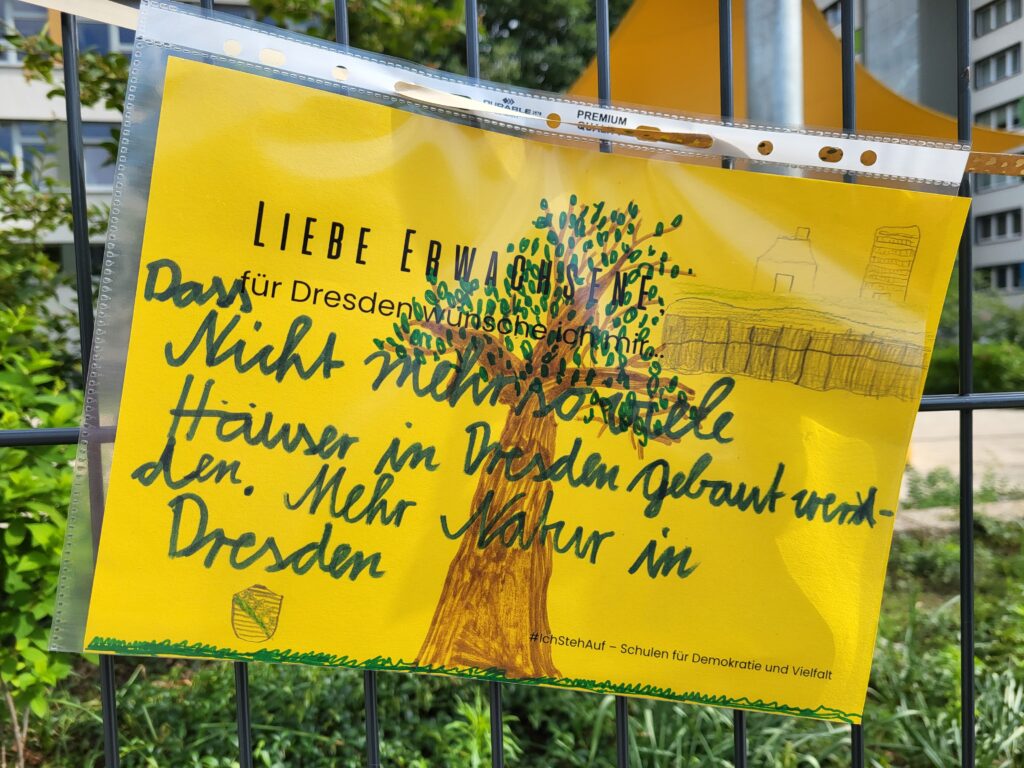 DURABLE
PREMIUM
LIEBE ERWACHSENE
für Dresden wünsche ich mir...
Dass
Nicht mehr so viele
Häuser in Dresden gebaut werd-
den. Mehr Natur in
Dresden
#IchStehAuf – Schulen für Demokratie und Vielfalt